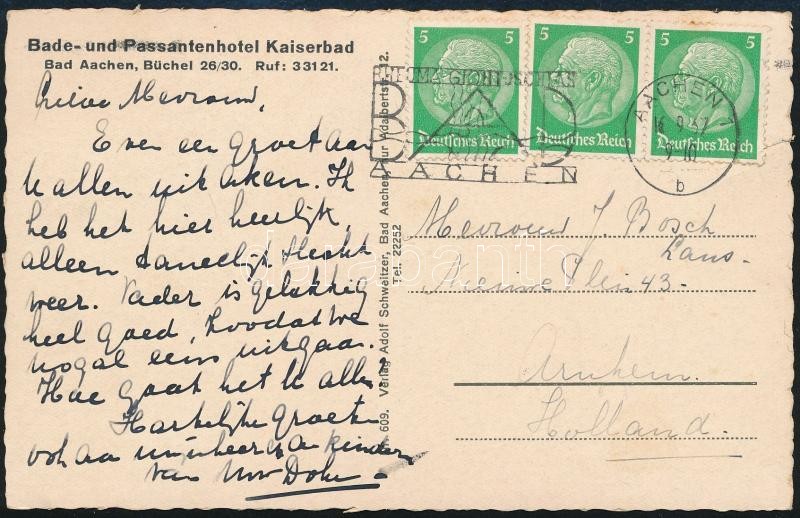 Bade- und Passantenhotel Kaiserbad
Bad Aachen, Büchel 26/30. Ruf: 33121.
Lieve Mevrouw,
Even een groet aan
U allen uit Aken. Ik
heb het hier heerlijk,
alleen danelijk slecht
weer. Vader is gelukkig
heel goed, zoodat we
nogal eens uitgaan.
Hoe gaat het U allen?
Hartelijke groeten
ook aan mijnheer en kinderen
van
609. Verlag Adolf Schweitzer, Bad Aachen, nur Adalbertstr. 12.
Tel. 22252
5
5
5
Deutsches Reich
Deutsches Reich
Deutsches Reich
RHEUMA GICHT ISCHIAS
BAD
AACHEN
AACHEN
9-10
b
Mevrouw J. Bosch
Nieuwe Plein 43.
Arnhem.
Holland.
darabanth